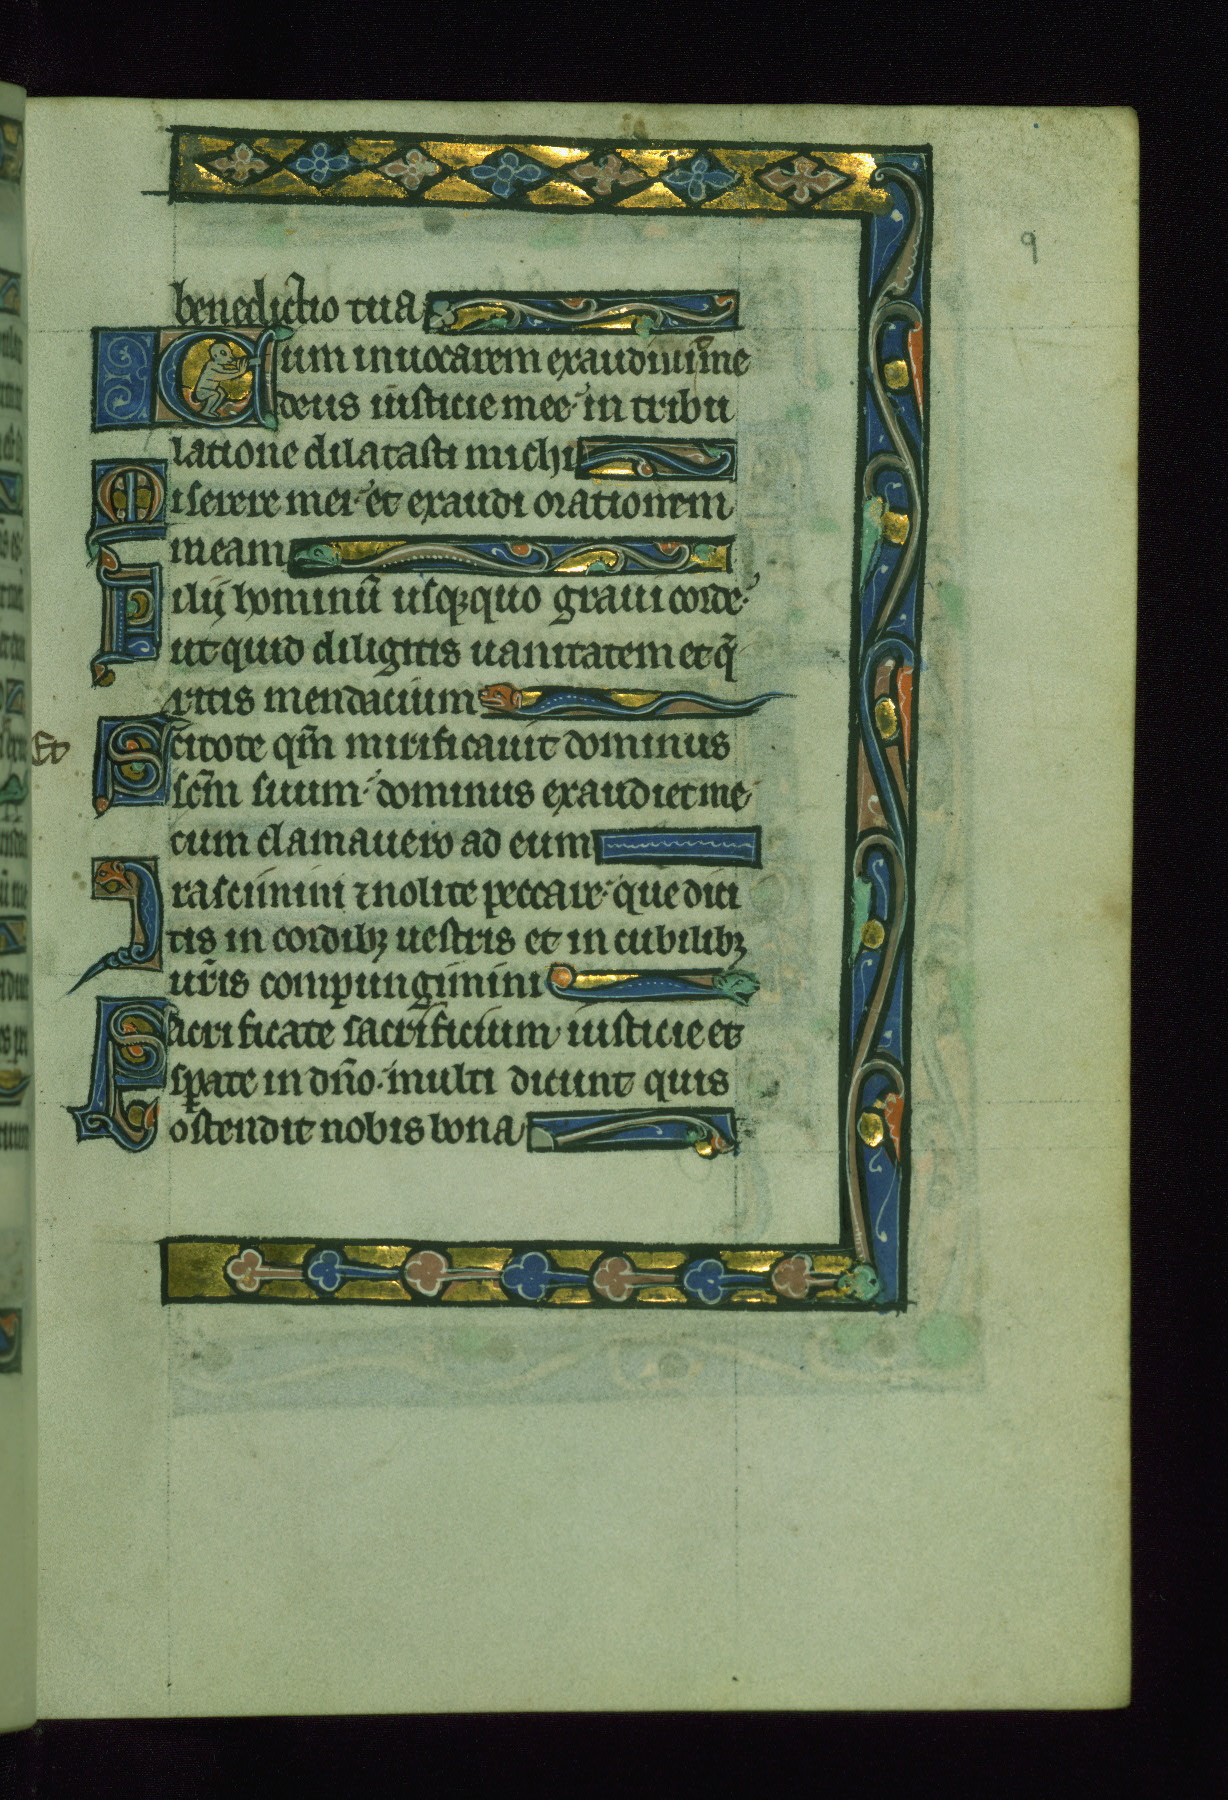 9
benedictio tua
Cum inuocarem exaudiuit me
deus iusticie mee· in tribu
latione dilatasti michi
Miserere mei· et exaudi orationem
meam
Filij hominū usq̨quo graui corde·
ut quid diligitis uanitatem et q̄
ritis mendacium
Et
Scitote qm̄ mirificauit dominus
scm̄ suum· dominus exaudiet me
cum clamauero ad eum
Irascimini ⁊ nolite peccare· que dici
tis in cordibꝫ uestris et in cubilibꝫ
ur̄is compungimini
Sacrificate sacrificium iusticie et
sꝑate in dn̄o· multi dicunt quis
ostendit nobis bona